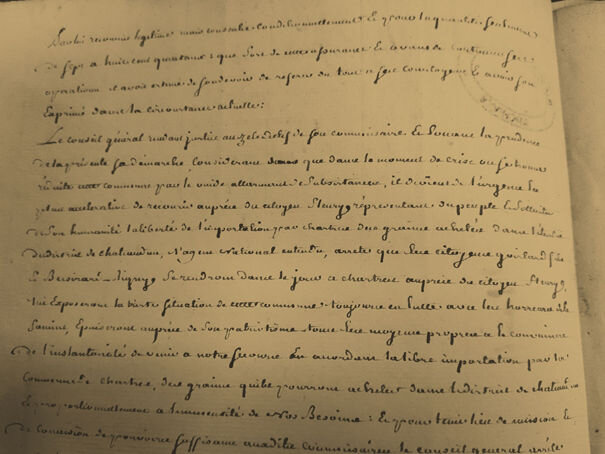 reconnue légitime mais toutefois conditionnellement Et pour la quantité seulement
de sept a huit cent quintaux; que fort de cette assurance Et avant de continuer ses
operations il avoit estimé de son devoir de referer du tout a ses collegues Et avoir son
Exprimé dans la circonstance actuelle:
Le conseil général rendant justice au zele de son commissaire Et Louant la prudence
de la presente sa démarche, Considerant que dans le moment de crise ou se trouve
réduite cette commune par le vuide allarmant de Subsistances, il devient de l'urgence la
plus accelerative de recourir auprès du citoyen fleury représentant du peuple Et Solliciter
de Son humanité la liberté de l'importation par chartres des grains achetés dans l'étendue
du district de chateaudun, l'agent national entendu, arrete que Les citoyens
Et Se rendront dans le jour a chartres auprès du citoyen fleury,
lui Exposeront la triste situation de cette commune toujours en lutte avec les horreurs de la
famine, Epuiseront auprès de Son patriotisme tous Les moyens propres a le convaincre
de l'instantanéité de venir a notre secours En accordant la libre importation par la
Commune de chartres, des grains qu'ils pourront acheter dans le district de chateaudun
Et proportionnellement a l'immensité de Nos Besoins: Et pour tenir lieu de mission Et
de commission de pouvoirs suffisans auxdits commissaires le conseil general arrête